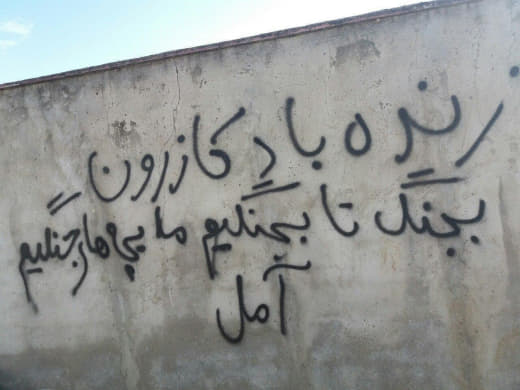 زنده باد کازرون
بجنگ تا بجنگیم ما بچه های جنگلیم
آمل